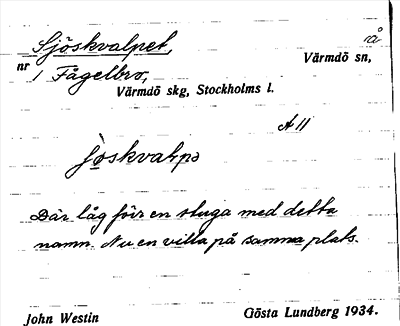 Sjöskvalpet, å
nr 1 Fågelbro, Värmdö sn,
Värmdö skg, Stockholms l.
A 11
Där låg förr en stuga med detta
namn. Nu en villa på samma plats.
John Westin Gösta Lundberg 1934.